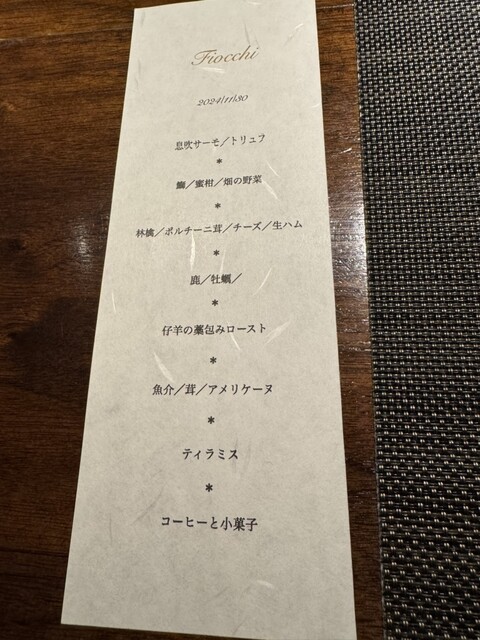 Fiocchi
2024/11/30
息吹サーモ／トリュフ
*
鰤／蜜柑／畑の野菜
*
林檎／ポルチーニ茸／チーズ／生ハム
*
鹿／牡蠣／
*
仔羊の藁包みロースト
*
魚介／茸／アメリケーヌ
*
ティラミス
*
コーヒーと小菓子